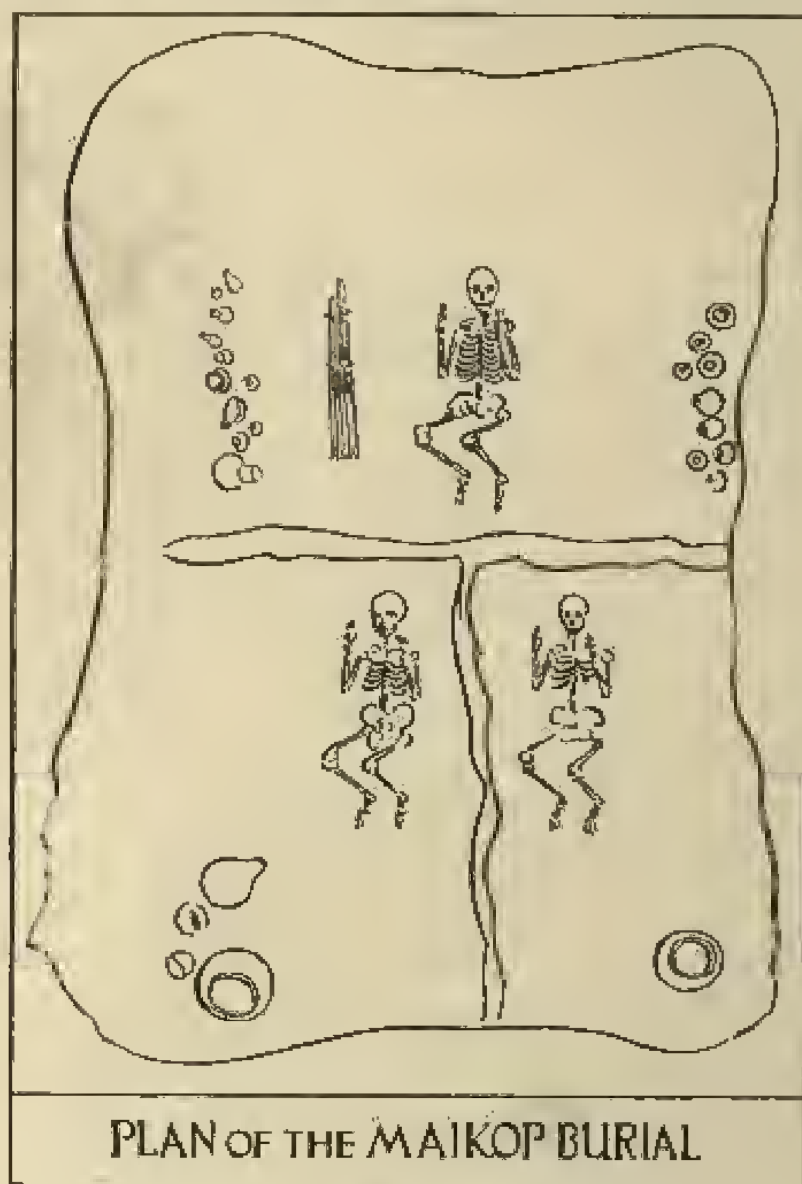 PLAN OF THE MAIKOP BURIAL